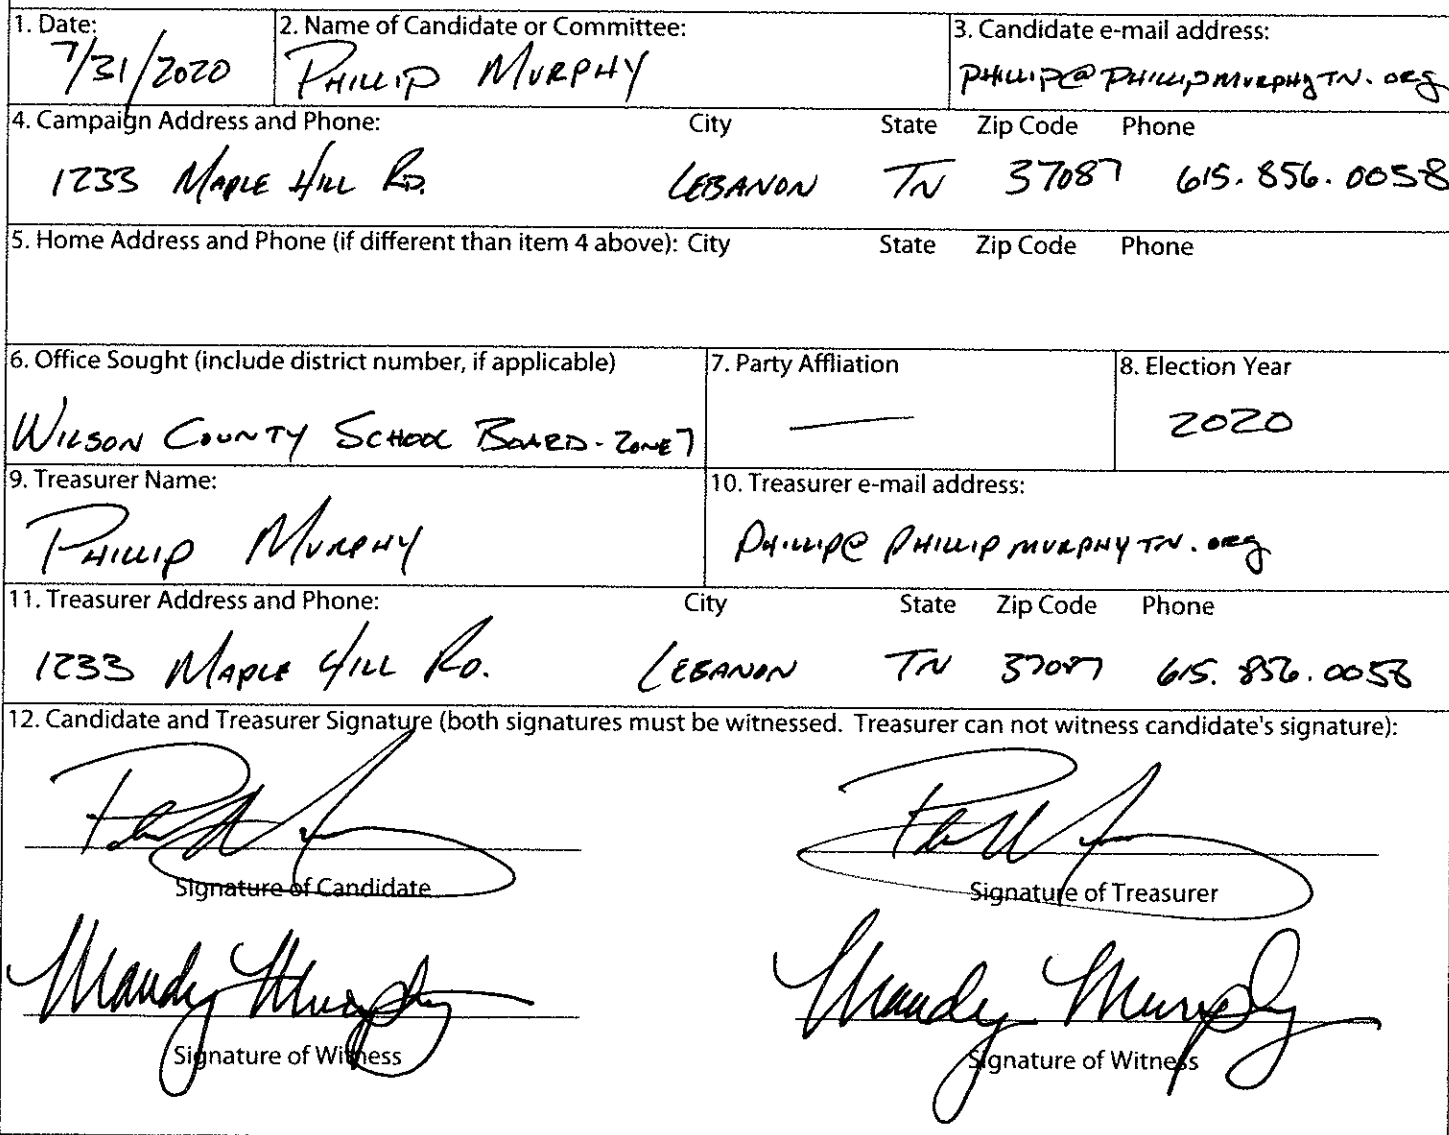 1. Date: 2. Name of Candidate or Committee: 3. Candidate e-mail address:
7/31/2020 PHILLIP MURPHY PHILLIP@PHILLIPMURPHYTN.ORG
4. Campaign Address and Phone: City State Zip Code Phone
1233 MAPLE HILL RD. LEBANON TN 37087 615.856.0058
5. Home Address and Phone (if different than item 4 above): City State Zip Code Phone
6. Office Sought (include district number, if applicable) 7. Party Affliation 8. Election Year
WILSON COUNTY SCHOOL BOARD - ZONE 7 — 2020
9. Treasurer Name: 10. Treasurer e-mail address:
PHILLIP MURPHY PHILLIP@PHILLIPMURPHYTN.ORG
11. Treasurer Address and Phone: City State Zip Code Phone
1233 MAPLE HILL RD. LEBANON TN 37087 615.856.0058
12. Candidate and Treasurer Signature (both signatures must be witnessed. Treasurer can not witness candidate's signature):
Signature of Candidate Signature of Treasurer
Mandy Murphy Mandy Murphy
Signature of Witness Signature of Witness